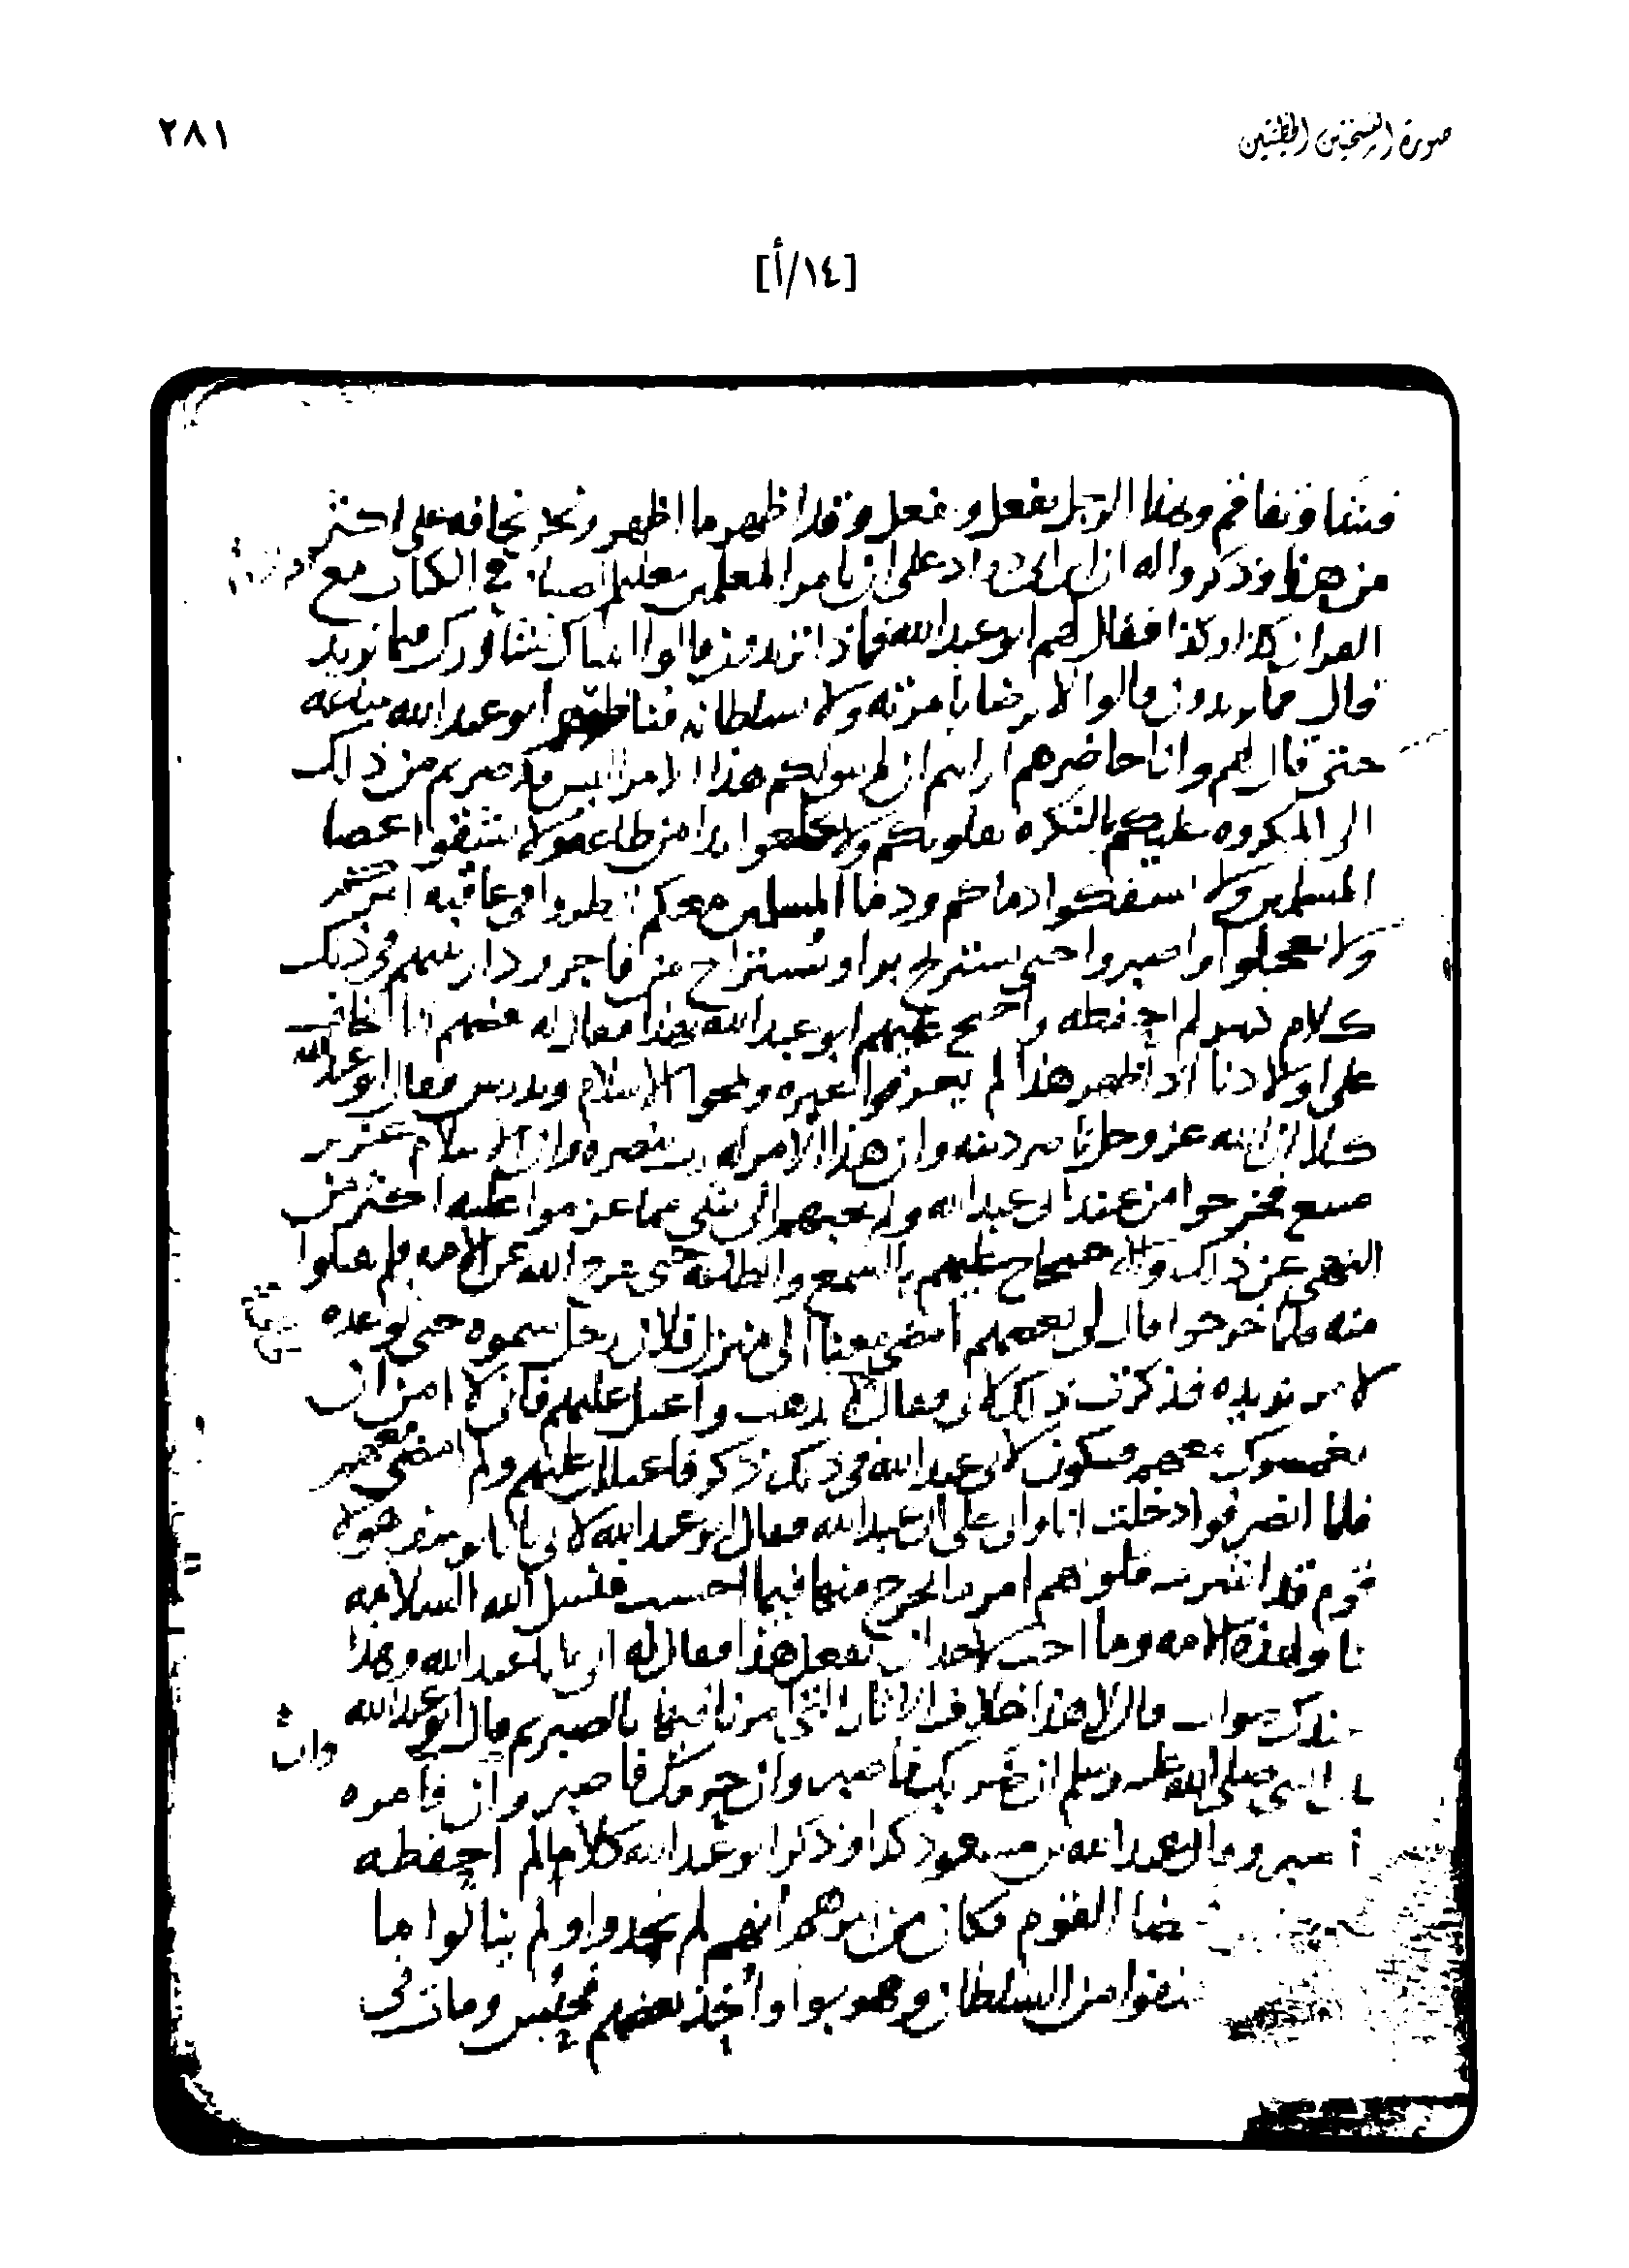 صورة النسختين الخطيتين
٢٨١
[١٤/أ]
فشا وتفاقم وهذا الرجل يفعل ويفعل وقد اظهر ما اظهر ونحن نخافه على اكثر
من هذا وذكروا له ان ابن ابي دواد على ان يامر المعلمين بتعليم الصبيان في الكتاب مع
القران كذا وكذا فقال لهم ابو عبد الله فماذا تريدون قالوا اتيناك نشاورك فيما نريد
قال فما تريدون قالوا لا نرضا بامرته ولا سلطانه فناظرهم ابو عبد الله ساعه
حتى قال لهم وانا حاضرهم ارايتم ان لم يتم لكم هذا الامر اليس قد صرتم من ذلك
الى المكروه عليكم بالنكره بقلوبكم ولا تخلعوا يدا من طاعه ولا تشقوا عصا
المسلمين ولا تسفكوا دماكم ودما المسلمين معكم انظروا في عاقبه امركم
ولا تعجلوا واصبروا حتى يستريح بر او يستراح من فاجر ودار بينهم في ذلك
كلام كثير لم احفظه واحتج عليهم ابو عبد الله بهذا فقال له بعضهم انا نخاف
على اولادنا اذا ظهر هذا لم يعرفوا غيره ويمحوا الاسلام ويدرس فقال ابو عبد الله
كلا ان الله عز وجل ناصر دينه وان هذا الامر له رب ينصره وان الاسلام عزيز
منيع فخرجوا من عند ابي عبد الله ولم يجبهم الى شي مما عزموا عليه اكثر من
النهي عن ذلك والاحتجاج عليهم بالسمع والطاعه حتى يفرج الله عن الامه فلم يقبلوا
منه فلما خرجوا قال لي بعضهم امضي معنا الى منزل فلان رجل سموه حتى نوعده
لامر نريده فذكرت ذلك لابي فقال لا تذهب واعتل عليهم فاني لا امن ان
يغمسوك معهم فيكون لابي عبد الله في ذلك ذكر فاعتللت عليهم ولم امضي معهم
فلما انصرفوا دخلت انا وابي على ابي عبد الله فقال ابو عبد الله لابي يابا يوسف هولا
قوم قد اشرب قلوبهم امر ما يخرج منها فيما احسب فنسل الله السلامه
نا ولهذه الامه وما احب لاحد ان يفعل هذا فقال له ابي يابا عبد الله وهذا
عندك صواب قال لا هذا خلاف الاثار التي امرنا فيها بالصبر ثم قال ابو عبد الله
قال النبي صلى الله عليه وسلم ان ضربك فاصبر وان حرمك فاصبر وان
وان
فامره
اصبر وقال عبد الله بن مسعود كذا وذكر ابو عبد الله كلاما لم احفظه
فمضا القوم فكان من امرهم انهم لم يحمدوا ولم ينالوا ما
اختفوا من السلطان وهربوا واخذ بعضهم فحبس ومات في